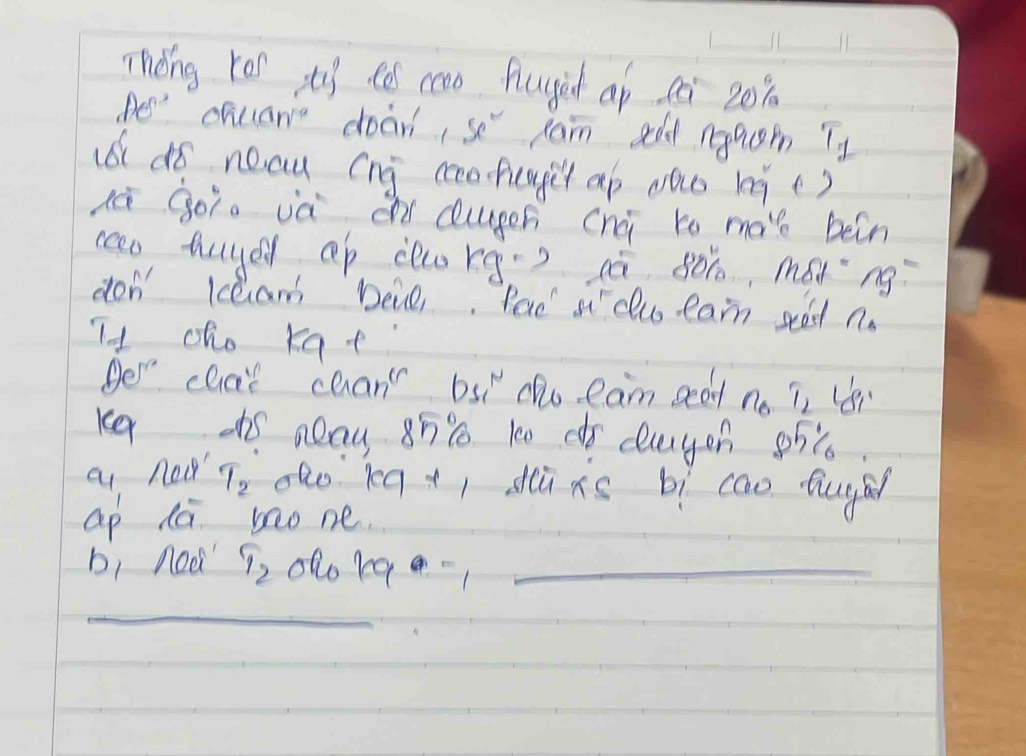 Thống kê tỷ lệ cao huyết áp là 20%
Để chuẩn đoán, sẽ làm xét nghiệm T1
với độ nhạy (ng cao huyết áp cho kq +)
là 90% và độ chuyên (ng ko mắc bệnh
cao huyết áp cho kq -) là 80%. Một ng
đến khám bệnh. Bác sĩ cho làm xét no
T1 cho kq +
Để chắc chắn bsĩ cho làm xét no T2 với
kq độ nhạy 85% ko độ chuyên 85%.
a, Nếu T2 cho kq +, thì xs bị cao huyết
áp là bao ne.
b, Nếu T2 cho kq -,